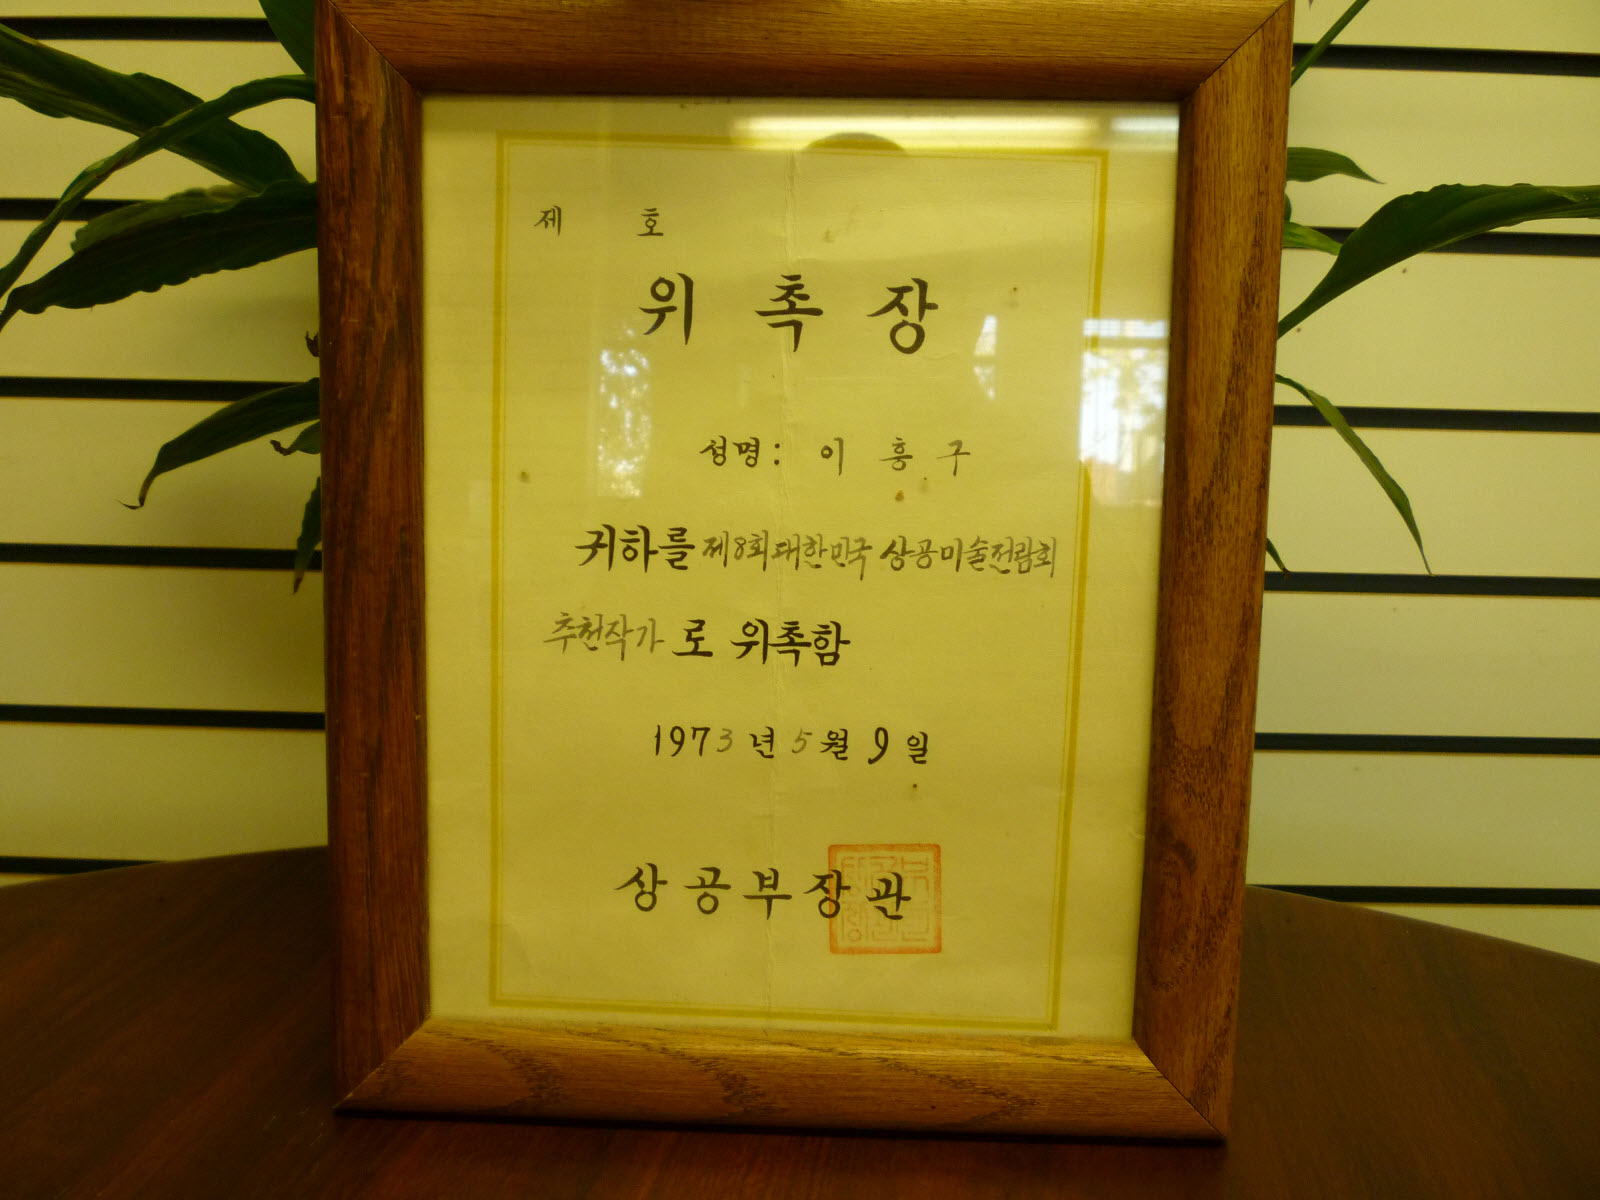 제 호
위 촉 장
성명: 이 흥 구
귀하를 제8회대한민국 상공미술전람회
추천작가 로 위촉함
1973년 5월 9일
상공부장관